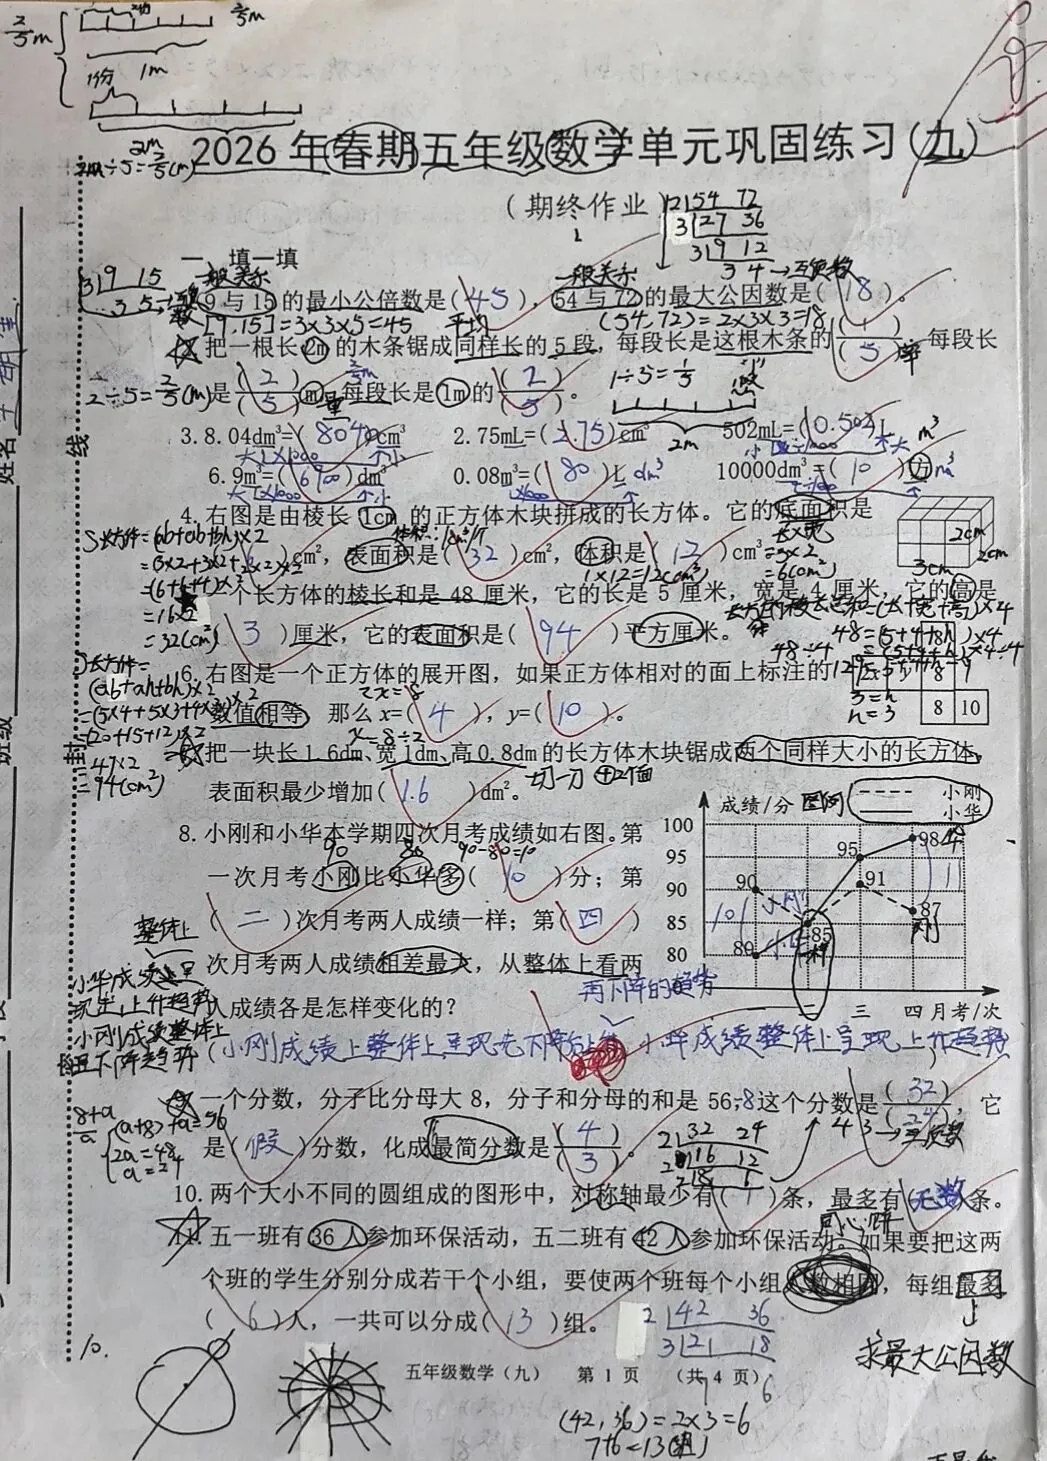 2/5m
2份
2/5m
1份
1m
2m
2m÷5=2/5(m)
2026年春期五年级数学单元巩固练习(九)
(期终作业)
2 54 72
3 27 36
3 9 12
3 4→互质数
一、填一填
3 9 15
3 5→互质数
一般关系
一般关系
9与15的最小公倍数是(45),54与72的最大公因数是(18)。
[9,15]=3×3×5=45
平均
(54,72)=2×3×3=18
把一根长2m的木条锯成同样长的5段,每段长是这根木条的(1)/(5),每段长
率
2÷5=2/5(m)
是(2)/(5)m,每段长是1m的(2)/(5)。
2/5m
量
1÷5=1/5
2m
3.8.04dm³=(8040)cm³ 2.75mL=(2.75)cm³ 502mL=(0.502)L
大 ×1000 小
小 ÷1000 大
m³
6.9m³=(6900)dm³ 0.08m³=(80)L dm³ 10000dm³=(10)方 m³
大 ×1000 小
×1000
÷1000
4.右图是由棱长1cm的正方体木块拼成的长方体。它的底面积是
体积:1cm³/个
长×宽
S长方体=(ab+ah+bh)×2
=(3×2+3×2+2×2)×2
=(6+6+4)×2
=16×2
=32(cm²)
( )cm²,表面积是(32)cm²,体积是(12)cm³
1×12=12(cm³)
=3×2
=6(cm²)
2cm
2cm
3cm
个长方体的棱长和是48厘米,它的长是5厘米,宽是4厘米,它的高是
(3)厘米,它的表面积是(94)平方厘米。
长方体的棱长总和=(长+宽+高)×4
48=(5+4+h)×4
48÷4=(5+4+h)×4÷4
12=5+4+h
3=h
h=3
S长方体=
(ab+ah+bh)×2
=(5×4+5×3+4×3)×2
=(20+15+12)×2
=47×2
=94(cm²)
6.右图是一个正方体的展开图,如果正方体相对的面上标注的
8
8 10
2x=8
数值相等,那么x=(4),y=(10)。
x=8÷2
把一块长1.6dm、宽1dm、高0.8dm的长方体木块锯成两个同样大小的长方体,
表面积最少增加(1.6)dm²。
切一刀 +2个面
8.小刚和小华本学期四次月考成绩如右图。第
90 80 90-80=10
一次月考小刚比小华多(10)分;第
(二)次月考两人成绩一样;第(四)
次月考两人成绩相差最大,从整体上看两
人成绩各是怎样变化的?
成绩/分 图例
小刚
小华
100
95
90
85
80
90
80
85
95
91
98
87
10
11
一样
二 三 四 月考/次
整体上
小华成绩呈
现出上升趋势
小刚成绩整体上
呈下降趋势
再下降的趋势
(小刚成绩上整体上呈现先下降后上升 小华成绩整体上呈现上升趋势)
一个分数,分子比分母大8,分子和分母的和是56,这个分数是(32)/(24),它
-8
是(假)分数,化成最简分数是(4)/(3)。
8+a
a
(a+8)+a=56
2a=48
a=24
2 32 24
2 16 12
4 3→互质数
10.两个大小不同的圆组成的图形中,对称轴最少有(1)条,最多有(无数)条。
同心圆
11.五一班有36人参加环保活动,五二班有42人参加环保活动。如果要把这两
个班的学生分别分成若干个小组,要使两个班每个小组人数相同,每组最多
(6)人,一共可以分成(13)组。
2 42 36
3 21 18
7 6
求最大公因数
10.
五年级数学(九) 第1页 (共4页)
(42,36)=2×3=6
7+6=13(组)
线
封
姓名
班级